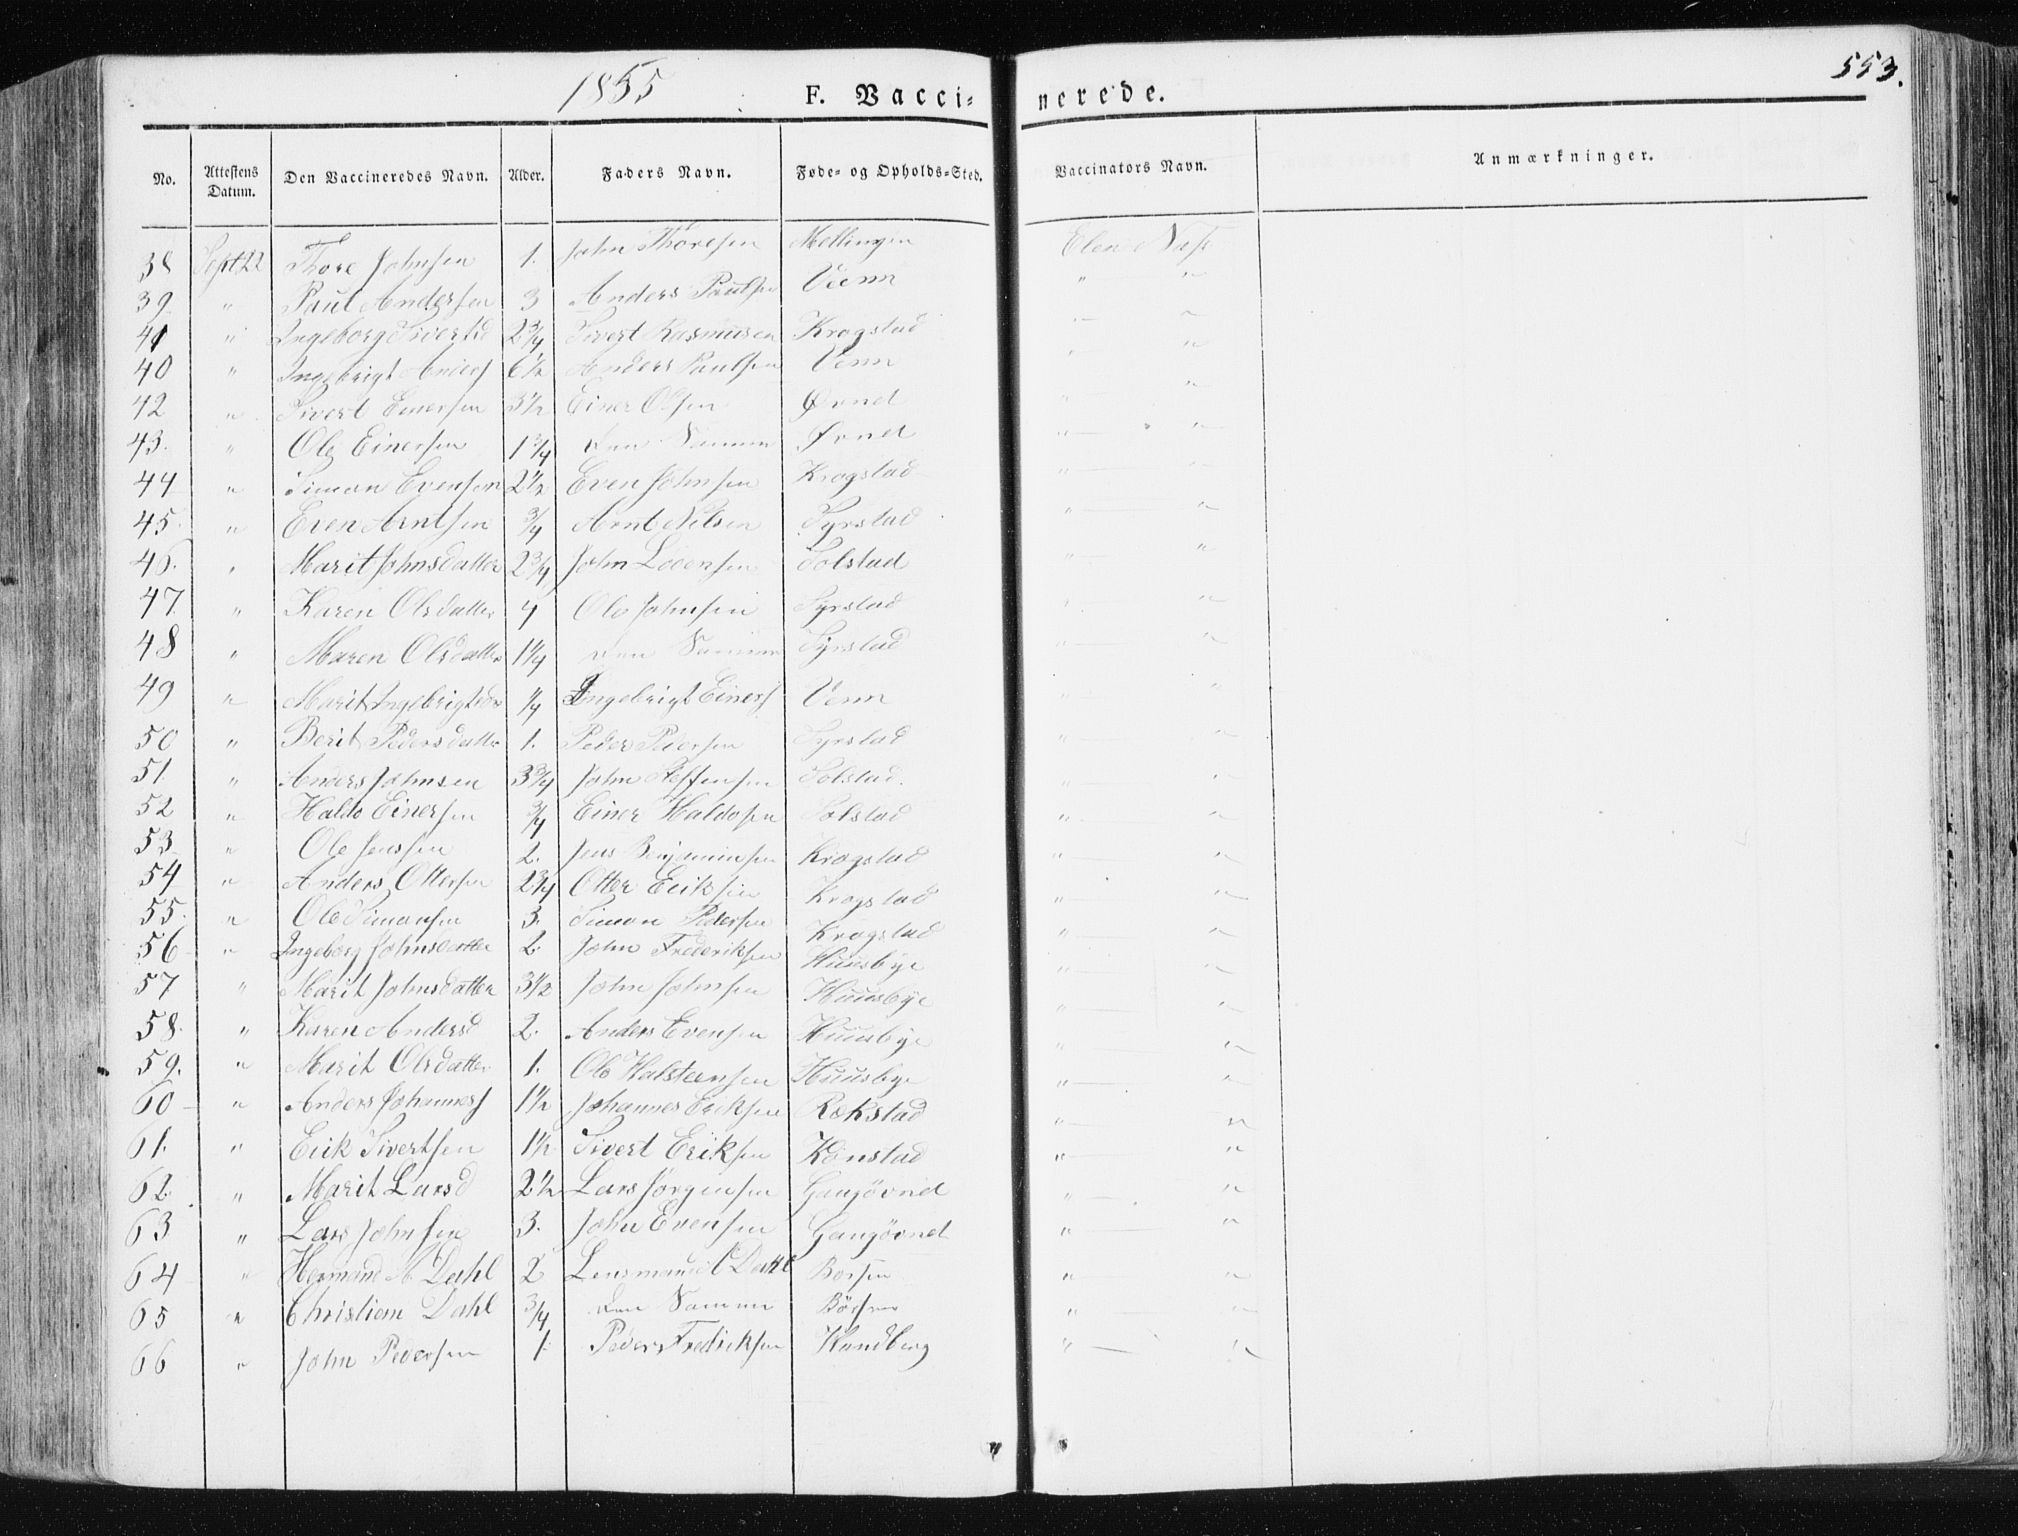 1855 F. Vacci- nerede. 553.
No. Attestens Datum. Den Vaccineredes Navn. Alder. Faders Navn. Føde- og Opholds-Sted. Vaccinators Navn. Anmærkninger.
38 Sept 22 Thore Johnsen 1. John Thoresen Mellingen Elen Næss
39 " Paul Andersen 3 Anders Paulsen Venn " "
41 " Ingeborg Sivertsd 2 3/4 Sivert Rasmusen Krogstad " "
40 " Ingebrigt Anders 6 1/2 Anders Paulsen Venn " "
42 " Sivert Einersen 3 1/2 Einer Olsen Øvnd " "
43. " Ole Einersen 1 3/4 den Samme Øvnd " "
44 " Simon Evensen 2 1/2 Even Johnsen Krogstad " "
45. " Even Arntsen 3/4 Arnt Nilsen Syrstad " "
46. " Marit Johnsdatter 2 3/4 John Loeensen Solstad " "
47 " Karen Olsdatter 4 Ole Johnsen Syrstad " "
48 " Maren Olsdatter 1 1/4 den Samme Syrstad " "
49 " Marit Ingebrigtsdr 1/4 Ingebrigt Einers Venn " "
50 " Berit Pedersdatter 1. Peder Pedersen Syrstad " "
51. " Anders Johnsen 3 3/4 John Steffensen Solstad. " "
52 " Haldo Einersen 3/4 Einer Haldosen Solstad " "
53 " Ole Jenssen 2. Jens Benjaminsen Krogstad " "
54 " Anders Ottersen 2 3/4 Otter Eriksen Krogstad " "
55. " Ole Simonsen 3. Simon Pedersen Krogstad " "
56 " Ingeborg Johnsdatter 2. John Frederiksen Huusbye " "
57 " Marit Johnsdatter 3 1/2 John Johnsen Huusbye " "
58. " Karen Andersd 2. Anders Evensen Huusbye " "
59. " Marit Olsdatter 1. Ole Halstensen Huusbye " "
60 " Anders Johannes 1 1/2 Johannes Eriksen Rekstad " "
61. " Erik Sivertsen 1 1/2 Sivert Eriksen Konstad " "
62 " Marit Larsd 2 1/2 Lars Jørgensen Gangøvnd " "
63 " Lars Johnsen 3. John Evensen Gangøvnd " "
64 " Hermand A Dahl 2 Lensmand C Dahl Børsen " "
65 " Christian Dahl 3/4 den Samme Børsen " "
66 " John Pedersen 1. Peder Fredriksen Kundberg " "